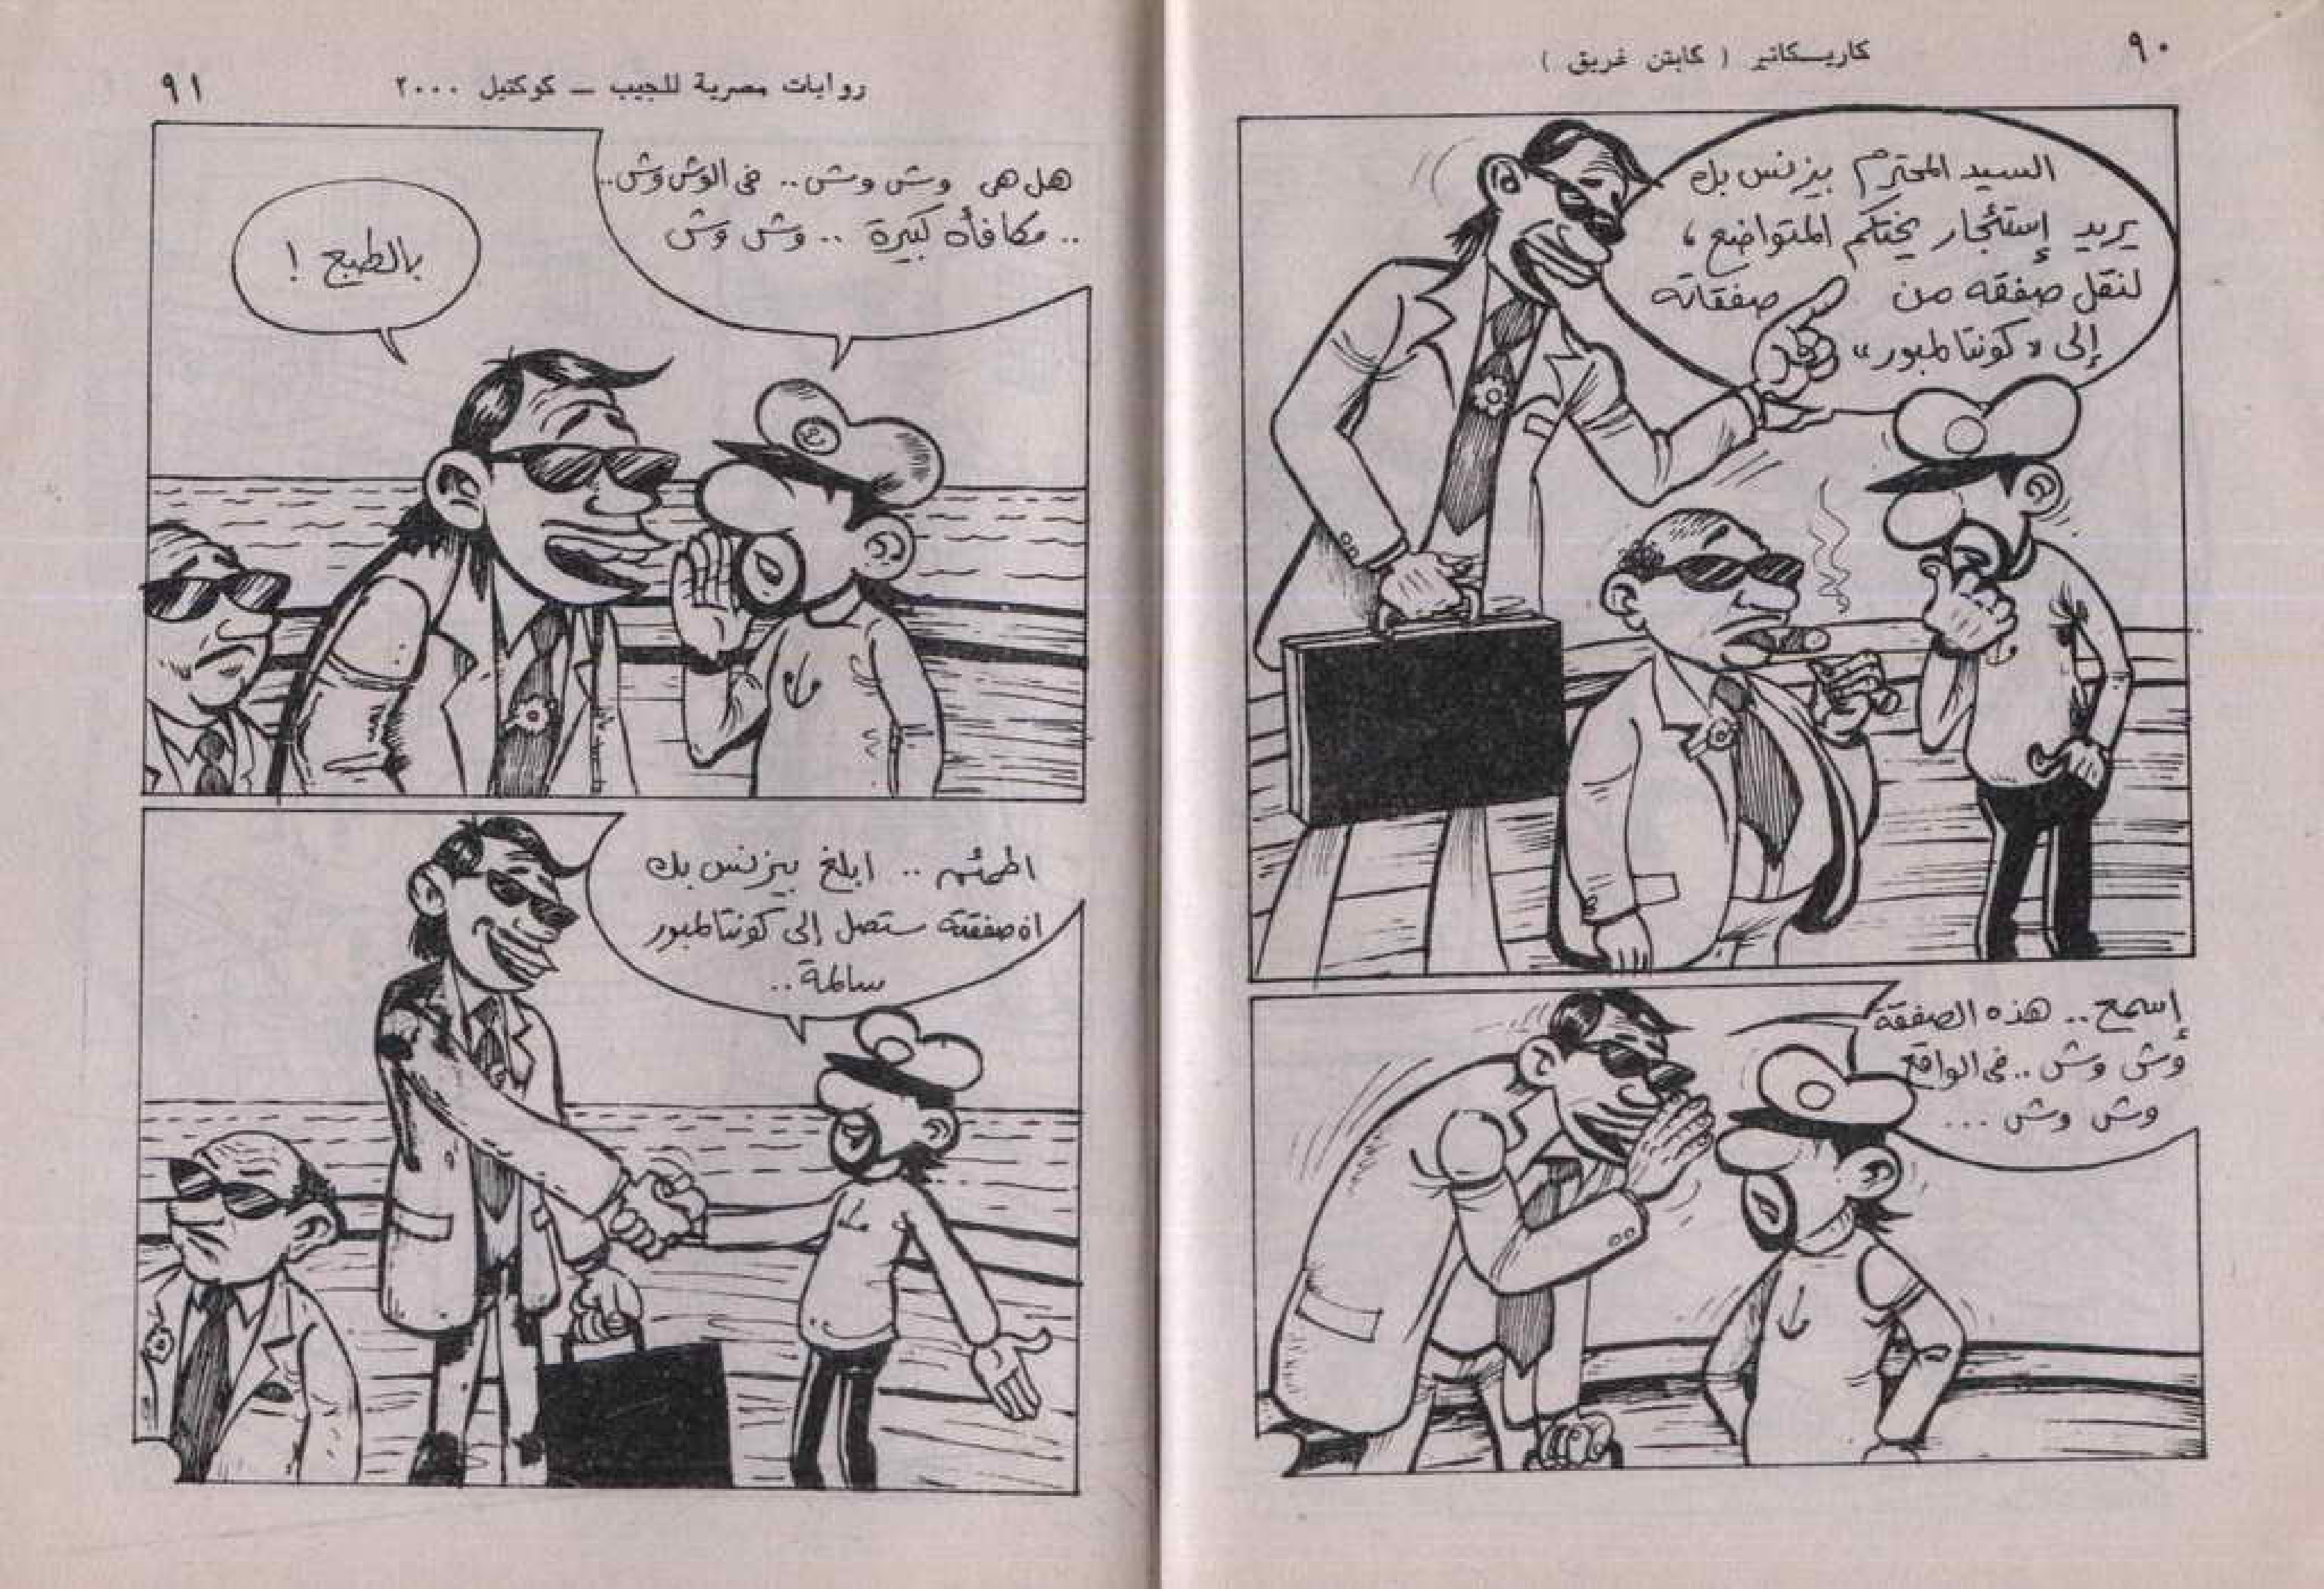 ٩٠
كاريكاتير ( كابتن غريق )
السيد المحترم بيزنس بك
يريد إستئجار يختكم المتواضع ،
لنقل صفقه من صفقاته
إلى « كونتالمبور »
إسمع.. هذه الصفقة
وش وش .. فى الواقع
وش وش ...
روايات مصرية للجيب – كوكتيل ٢٠٠٠
٩١
هل هى وش وش.. فى الوش وش..
.. مكافأة كبيرة .. وش وش
بالطبع !
اطمئن .. ابلغ بيزنس بك
ان صفقته ستصل إلى كونتالمبور
سالمة..